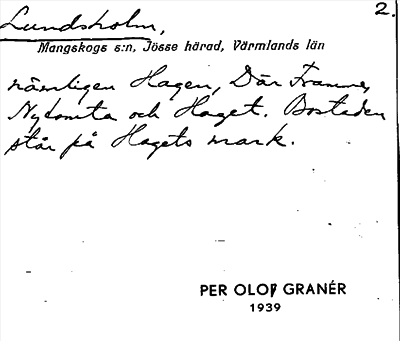 Lundsholm, 2.
Mangskogs s:n, Jösse härad, Värmlands län
nämligen Hagen, Där Framme,
Nytomta och Haget. Bostaden
står på Hagets mark.
PER OLOF GRANÉR
1939